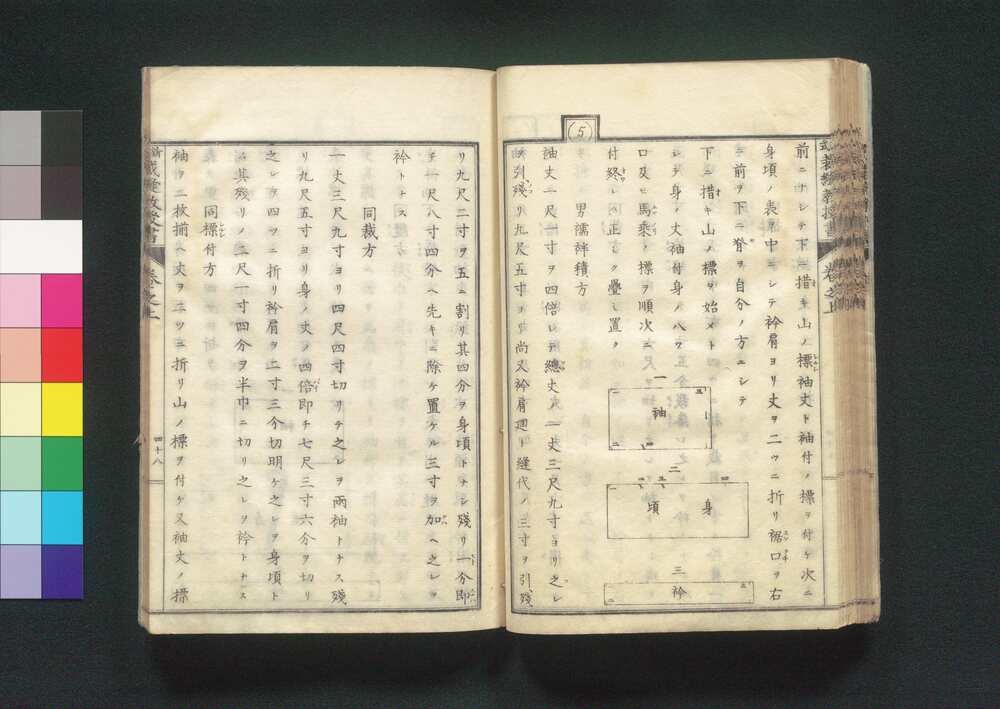 前ニナシテ下ニ措キ山ノ標袖丈ト袖付ノ標ヲ付ケ次ニ
身頃ノ表ヲ中ニシテ衿肩ヨリ丈ヲ二ツニ折リ裾口ヲ右
ニ前ヲ下ニ脊ヲ自分ノ方ニシテ
下ニ措キ山ノ標ヲ始メト
シテ身ノ丈袖付身ノ八ツ
口及ヒ馬乘ノ標ヲ順次ニ
付終レハ正シク疊ミ置ク
一
袖
二
身
頃
三
衿
男襦袢積方
袖丈一尺一寸ヲ四倍シテ總丈ノ一丈三尺九寸ヨリ之レ
ヲ引殘リ九尺五寸ヲ尚又衿肩廻ト縫代ノ三寸ヲ引殘
(5)
リ九尺二寸ヲ五ニ割リ其四分ヲ身頃トナシ殘リ一分即
チ一尺八寸四分ヘ先キニ除ケ置ケル三寸ヲ加ヘ之レヲ
衿トナス
同裁方
一丈三尺九寸ヨリ四尺四寸切リテ之レヲ兩袖トナス殘
リ九尺五寸ヨリ身ノ丈ノ四倍即チ七尺三寸六分ヲ切リ
之レヲ四ツニ折リ衿肩ヲ二寸三分切明ケ之レヲ身頃ト
其殘リノ二尺一寸四分ヲ半巾ニ切リ之レヲ衿トナス
同標付方
袖ヲ二枚揃ヘ丈ヲ二ツニ折リ山ノ標ヲ付ケ又袖丈ノ標
裁縫教授書
卷之上
四十八